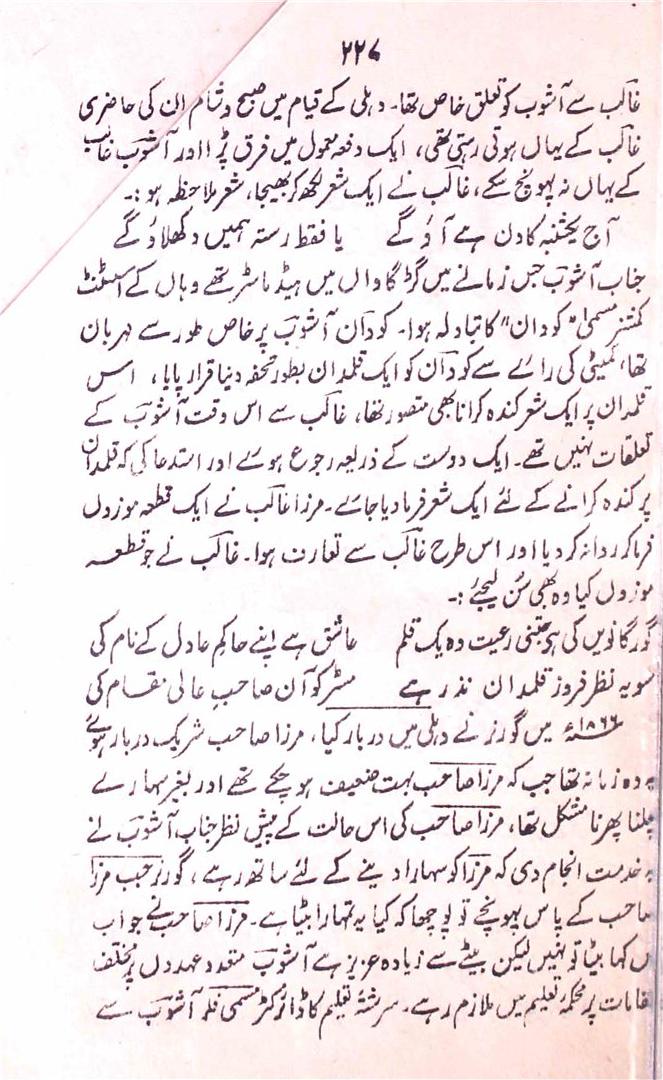 ۲۲۷
غالب سے آشوب کو تعلق خاص تھا۔ دہلی کے قیام میں صبح و شام ان کی حاضری
غالب کے یہاں ہوتی رہتی تھی، ایک دفعہ معمول میں فرق پڑا اور آشوب غالب
کے یہاں نہ پہونچ سکے، غالب نے ایک شعر لکھ کر بھیجا، شعر ملاحظہ ہو:۔
آج یکشنبہ کا دن ہے آؤ گے یا فقط رستہ ہمیں دکھلاؤ گے
جناب آشوب جس زمانے میں گڑگاواں میں ہیڈ ماسٹر تھے وہاں کے اسسٹنٹ
کمشنر مسمیٰ "کودان" کا تبادلہ ہوا۔ کودان آشوب پر خاص طور سے مہربان
تھا، کمیٹی کی رائے سے کودان کو ایک قلمدان بطور تحفہ دینا قرار پایا، اس
قلمدان پر ایک شعر کندہ کرانا بھی متصور تھا، غالب سے اس وقت آشوب کے
تعلقات نہیں تھے۔ ایک دوست کے ذریعہ رجوع ہوئے اور استدعا کی کہ قلمدان
پر کندہ کرانے کے لئے ایک شعر فرما دیا جائے۔ مرزا غالب نے ایک قطعہ موزوں
فرما کر روانہ کر دیا اور اس طرح غالب سے تعارف ہوا۔ غالب نے جو قطعہ
موزوں کیا وہ بھی سُن لیجئے:۔
گورگانویں کی ہے جتنی رعیت وہ یک قلم عاشق ہے اپنے حاکم عادل کے نام کی
سو یہ نظر فروز قلمدان نذر ہے مسٹر کوآن صاحبِ عالی مقام کی
۱۸۶۶ء میں گورنر نے دہلی میں دربار کیا، مرزا صاحب شریک دربار ہوئے
یہ وہ زمانہ تھا جب کہ مرزا صاحب بہت ضعیف ہو چکے تھے اور بغیر سہارے
چلنا پھرنا مشکل تھا، مرزا صاحب کی اس حالت کے پیش نظر جناب آشوب نے
یہ خدمت انجام دی کہ مرزا کو سہارا دینے کے لئے ساتھ رہے، گورنر جب مرزا
صاحب کے پاس پہونچے تو پوچھا کہ کیا یہ تمہارا بیٹا ہے۔ مرزا صاحب نے جواب
میں کہا بیٹا تو نہیں لیکن بیٹے سے زیادہ عزیز ہے آشوب متعدد عہدوں پر مختلف
مقامات پر محکمہ تعلیم میں ملازم رہے۔ سر رشتۂ تعلیم کا ڈائرکٹر مسمی فلر آشوب سے